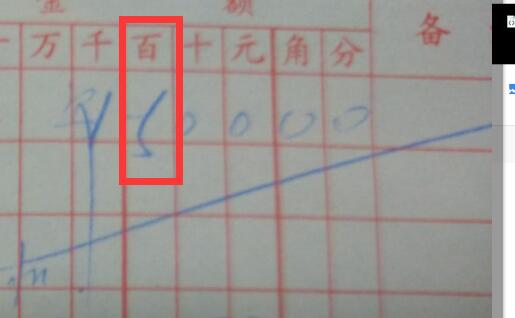 金 额
万 千 百 十 元 角 分 备
¥ 5 0 0 0 0